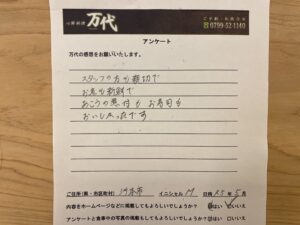 心粋料理 万代
ご予約・お問合せ
0799-52-1140
アンケート
万代の感想をお願いいたします。
スタッフの方も親切で
お魚も新鮮で
あこうの煮付も お寿司も
おいしかったです
ご住所(県・市区町村) 洲本市 イニシャル M 日時 25年5月
内容をホームページなどに掲載してもよろしいでしょうか? はい いいえ
アンケートと食事中の写真の掲載もよろしいでしょうか? はい いいえ